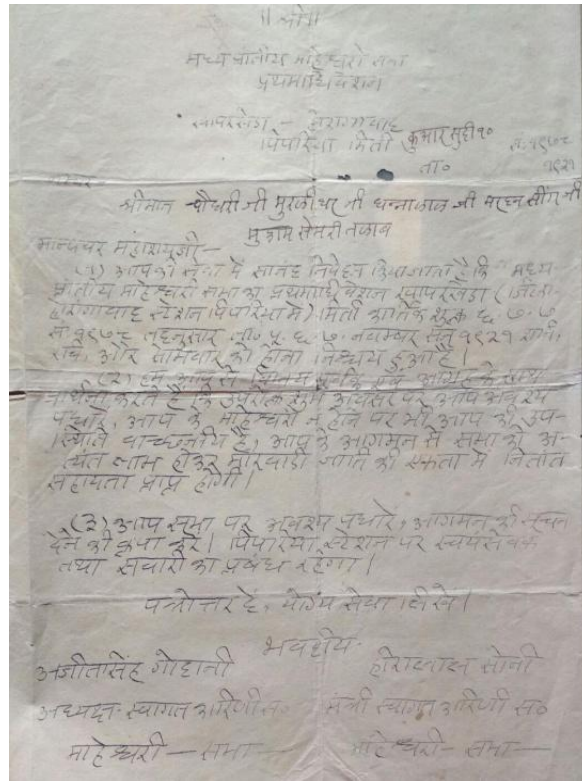 ॥ श्री ॥
मध्य प्रांतीय माहेश्वरी सभा
प्रथमाधिवेशन
खापरखेडा – होशंगाबाद
पिपरिया मिती कुमार सुदी १० सं. १९७८
ता० १९२१
श्रीमान चौधरी जी मुरलीधर जी धन्नालाल जी
मुकाम सेमरी तलाब
मान्यवर महाशयजी—
(१) आपकी सेवा में सानंद निवेदन किया जाता है कि मध्य
प्रांतीय माहेश्वरी सभा का प्रथमाधिवेशन खापरखेडा (जिला
होशंगाबाद स्टेशन पिपरिया में) मिती कार्तिक शुक्ल ६, ७, ७
सं १९७८ तद्नुसार ता. ५, ६, ७, नवम्बर सन् १९२१ शनि,
रवि, और सोमवार को होना निश्चय हुआ है।
(२) हम आप से विनय पूर्वक एवं आग्रह के साथ
प्रार्थना करते हैं कि उपरोक्त शुभ अवसर पर आप अवश्य
पधारें, आप के माहेश्वरी न होने पर भी आप की उप-
स्थिति वान्छनीय है, आप के आगमन से सभा को अ-
त्यंत लाभ होकर मारवाडी जाती की एकता में नितांत
सहायता प्राप्त होगी।
(३) आप सभा पर अवश्य पधारें, आगमन की सूचना
देने की कृपा करें। पिपरिया स्टेशन पर स्वयंसेवक
तथा सवारी का प्रबंध रहेगा।
पत्रोत्तर दें, योग्य सेवा लिखें।
भवदीय
अजीतसिंह गोदानी हीरालाल सोनी
अध्यक्ष स्वागत कारिणी स० मंत्री स्वागत कारिणी स०
माहेश्वरी — सभा — माहेश्वरी — सभा —